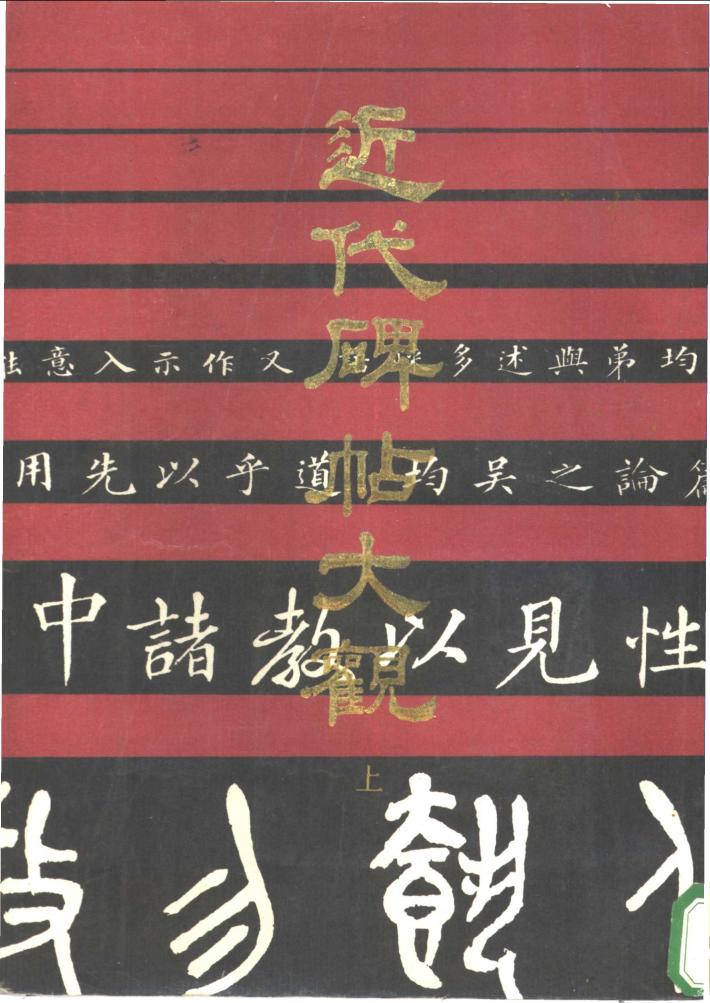 近代碑帖大觀
上
均弟與述多 又作示入意
論之吳均 道乎以先用
性見以教諸中